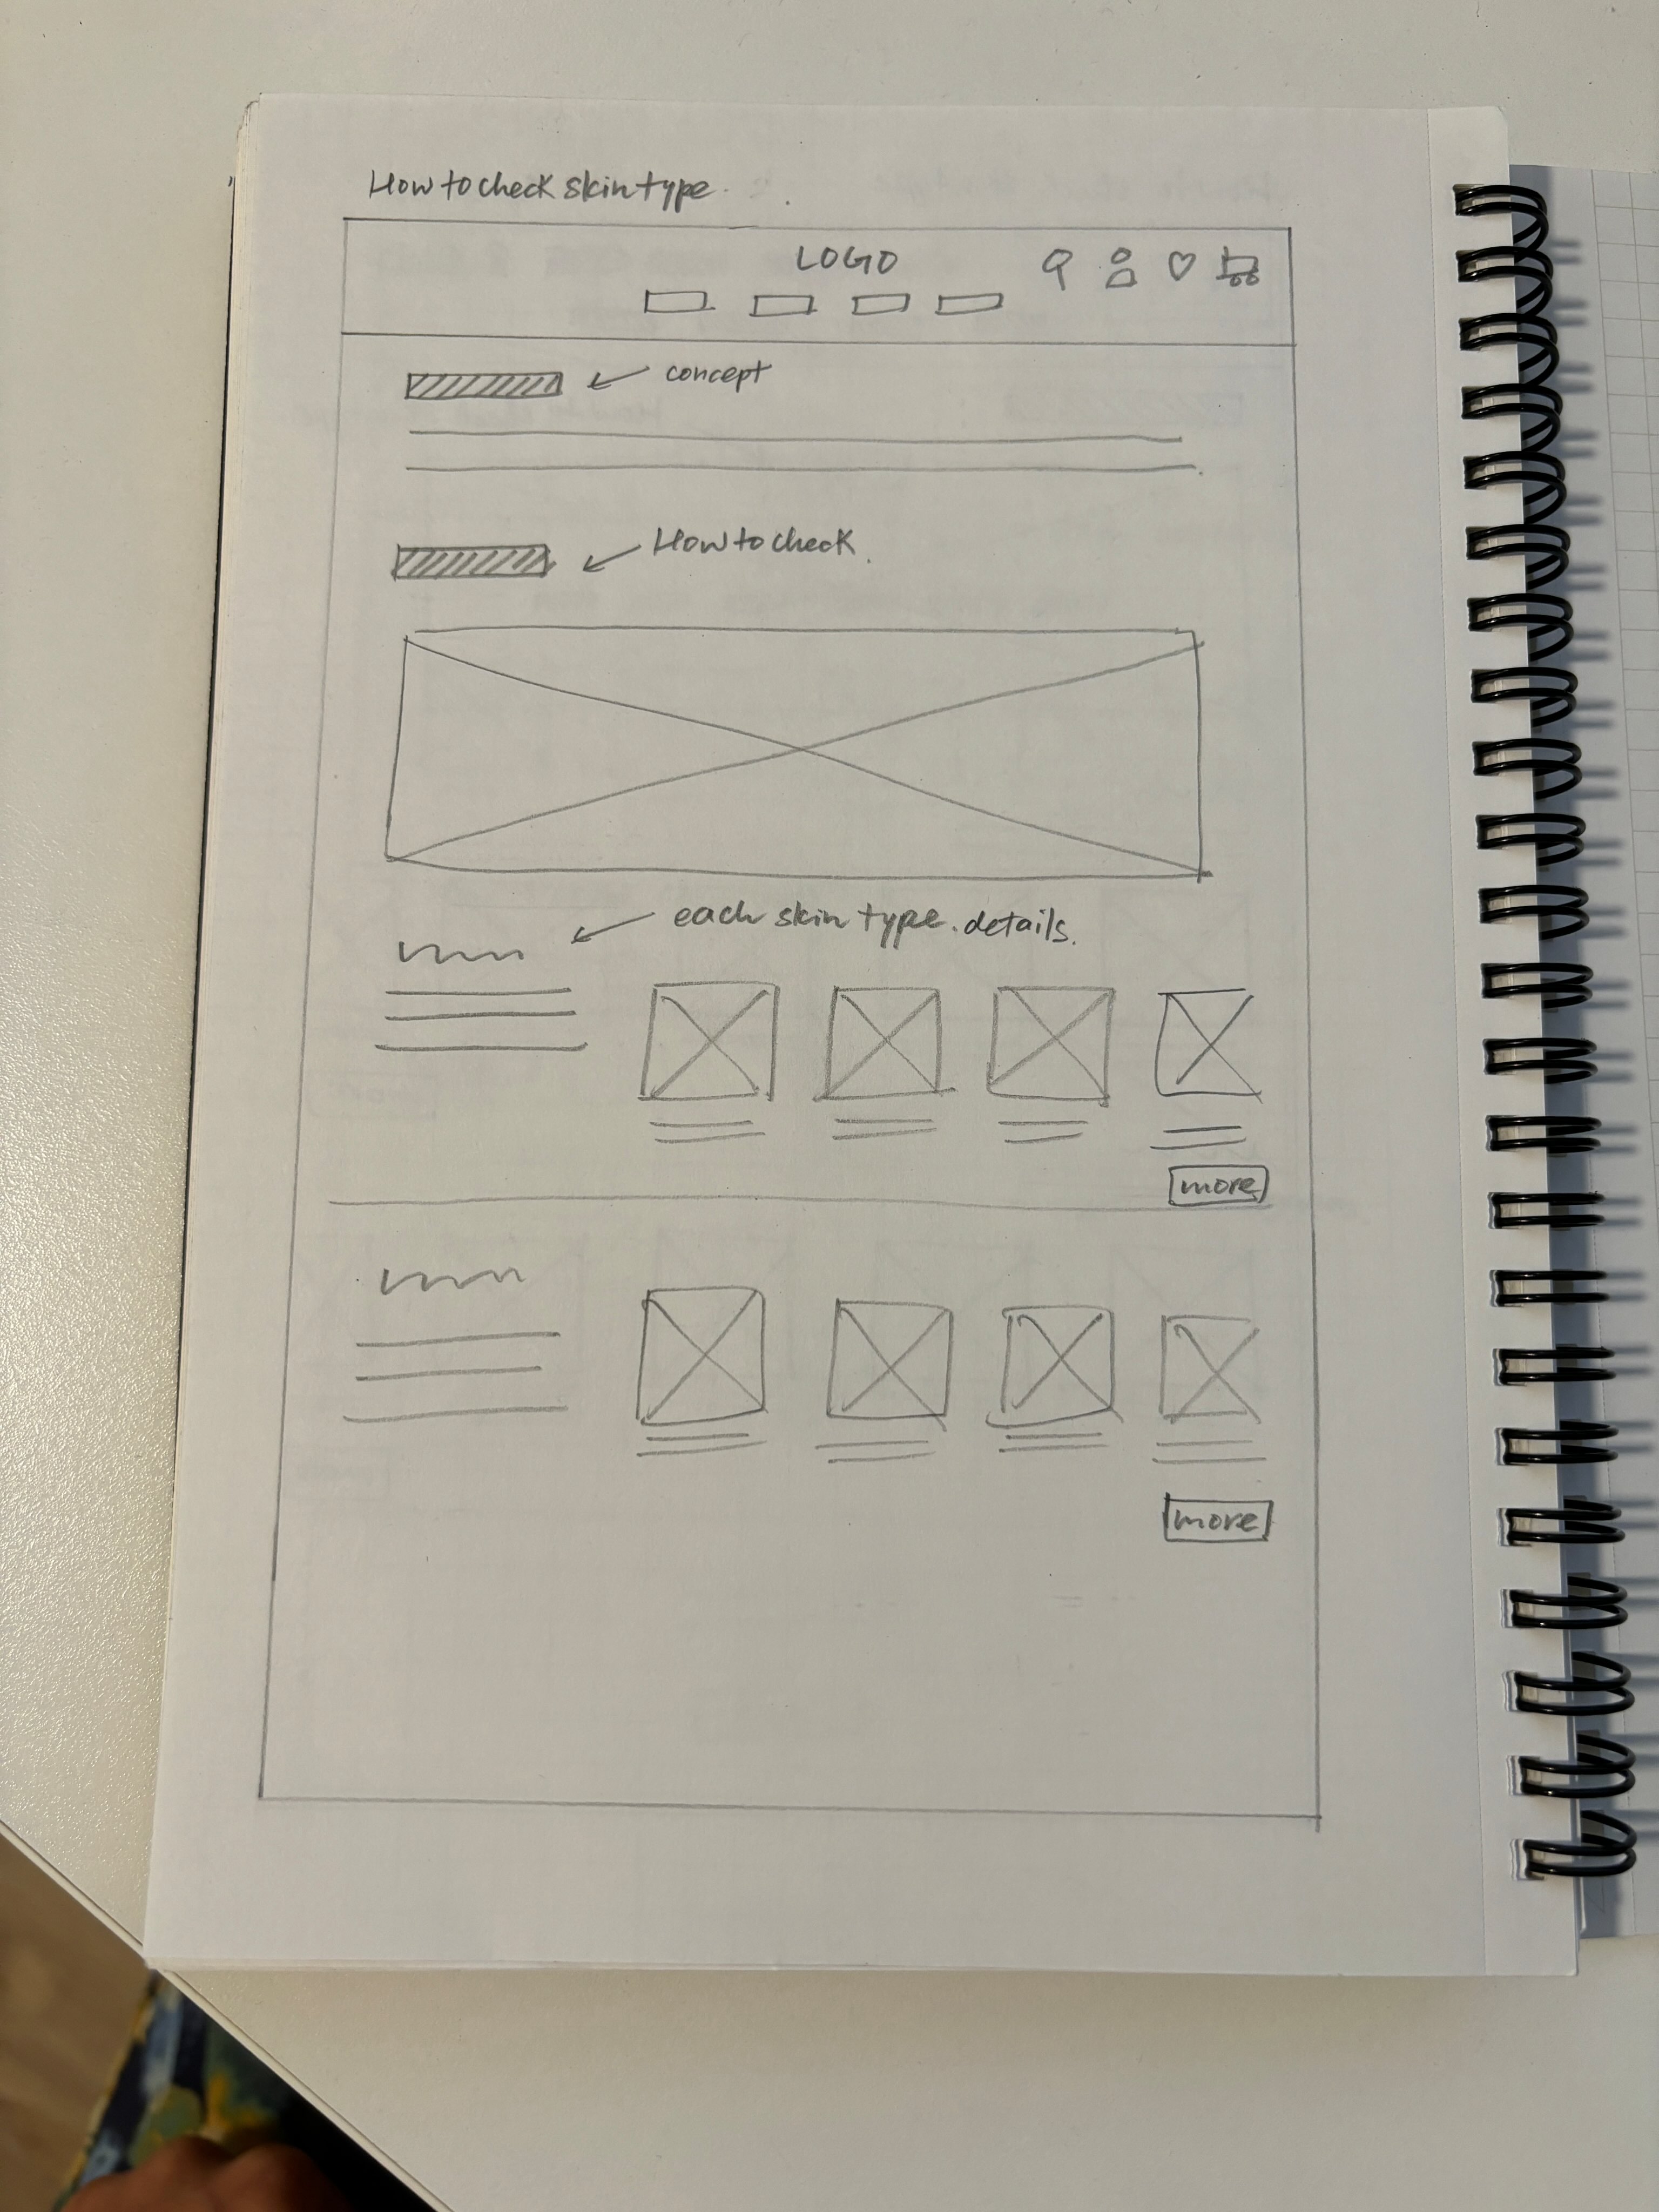 How to check skin type.
LOGO
concept
How to check.
each skin type. details.
more
more